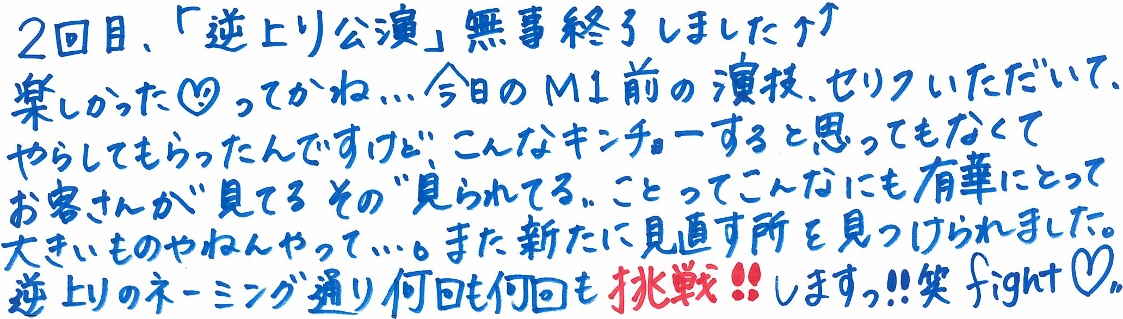 2回目、「逆上り公演」無事終了しました↑↑
楽しかった♡ってかね…今日のM1前の演技、セリフいただいて、
やらしてもらったんですけど、こんなキンチョーすると思ってもなくて
お客さんが"見てるその"見られてる〟ことってこんなにも有華にとって
大きいものやねんやって…。また新たに見直す所を見つけられました。
逆上りのネーミング通り何回も何回も挑戦!!しますっ!!笑 fight♡〟